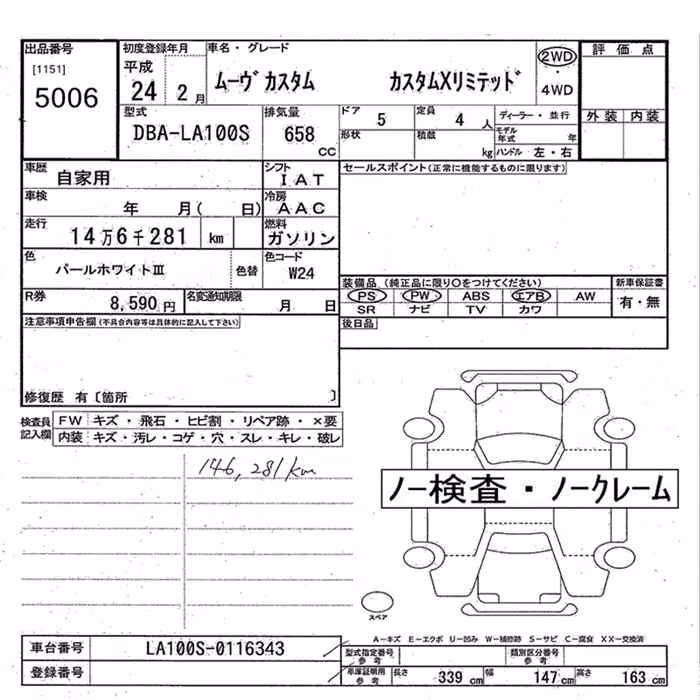 出品番号 初度登録年月 車名・グレード 2WD 評価点
[1151] 平成 ムーヴ カスタム カスタムXリミテッド ・
5006 24 2月 4WD
型式 排気量 ドア 5 定員 4人 ディーラー・並行 外装 内装
DBA-LA100S 658 CC 形状 積載 kg モデル年式 年
ハンドル 左・右
車歴 自家用 シフト IAT セールスポイント(正常に機能するものに限ります)
車検 年 月( 日) 冷房 AAC
走行 14万6千281 km 燃料 ガソリン
色 パールホワイトⅢ 色替 色コード W24
装備品 (純正品に限り○をつけてください) 新車保証書
R券 8,590円 名変通知期限 月 日 PS PW ABS エアB AW 有・無
SR ナビ TV カワ
注意事項申告欄(不具合内容等は具体的に記入して下さい) 後日品
修復歴 有〔箇所 〕
検査員記入欄 FW キズ・飛石・ヒビ割・リペア跡・×要
内装 キズ・汚レ・コゲ・穴・スレ・キレ・破レ
146,281km
ノー検査・ノークレーム
スペア
A-キズ E-エクボ U-凹み W-補修跡 S-サビ C-腐食 XX-交換済
車台番号 LA100S-0116343 型式指定番号 参考 類別区分番号 参考
登録番号 車庫証明用 参考 長さ 339 cm 幅 147 cm 高さ 163 cm